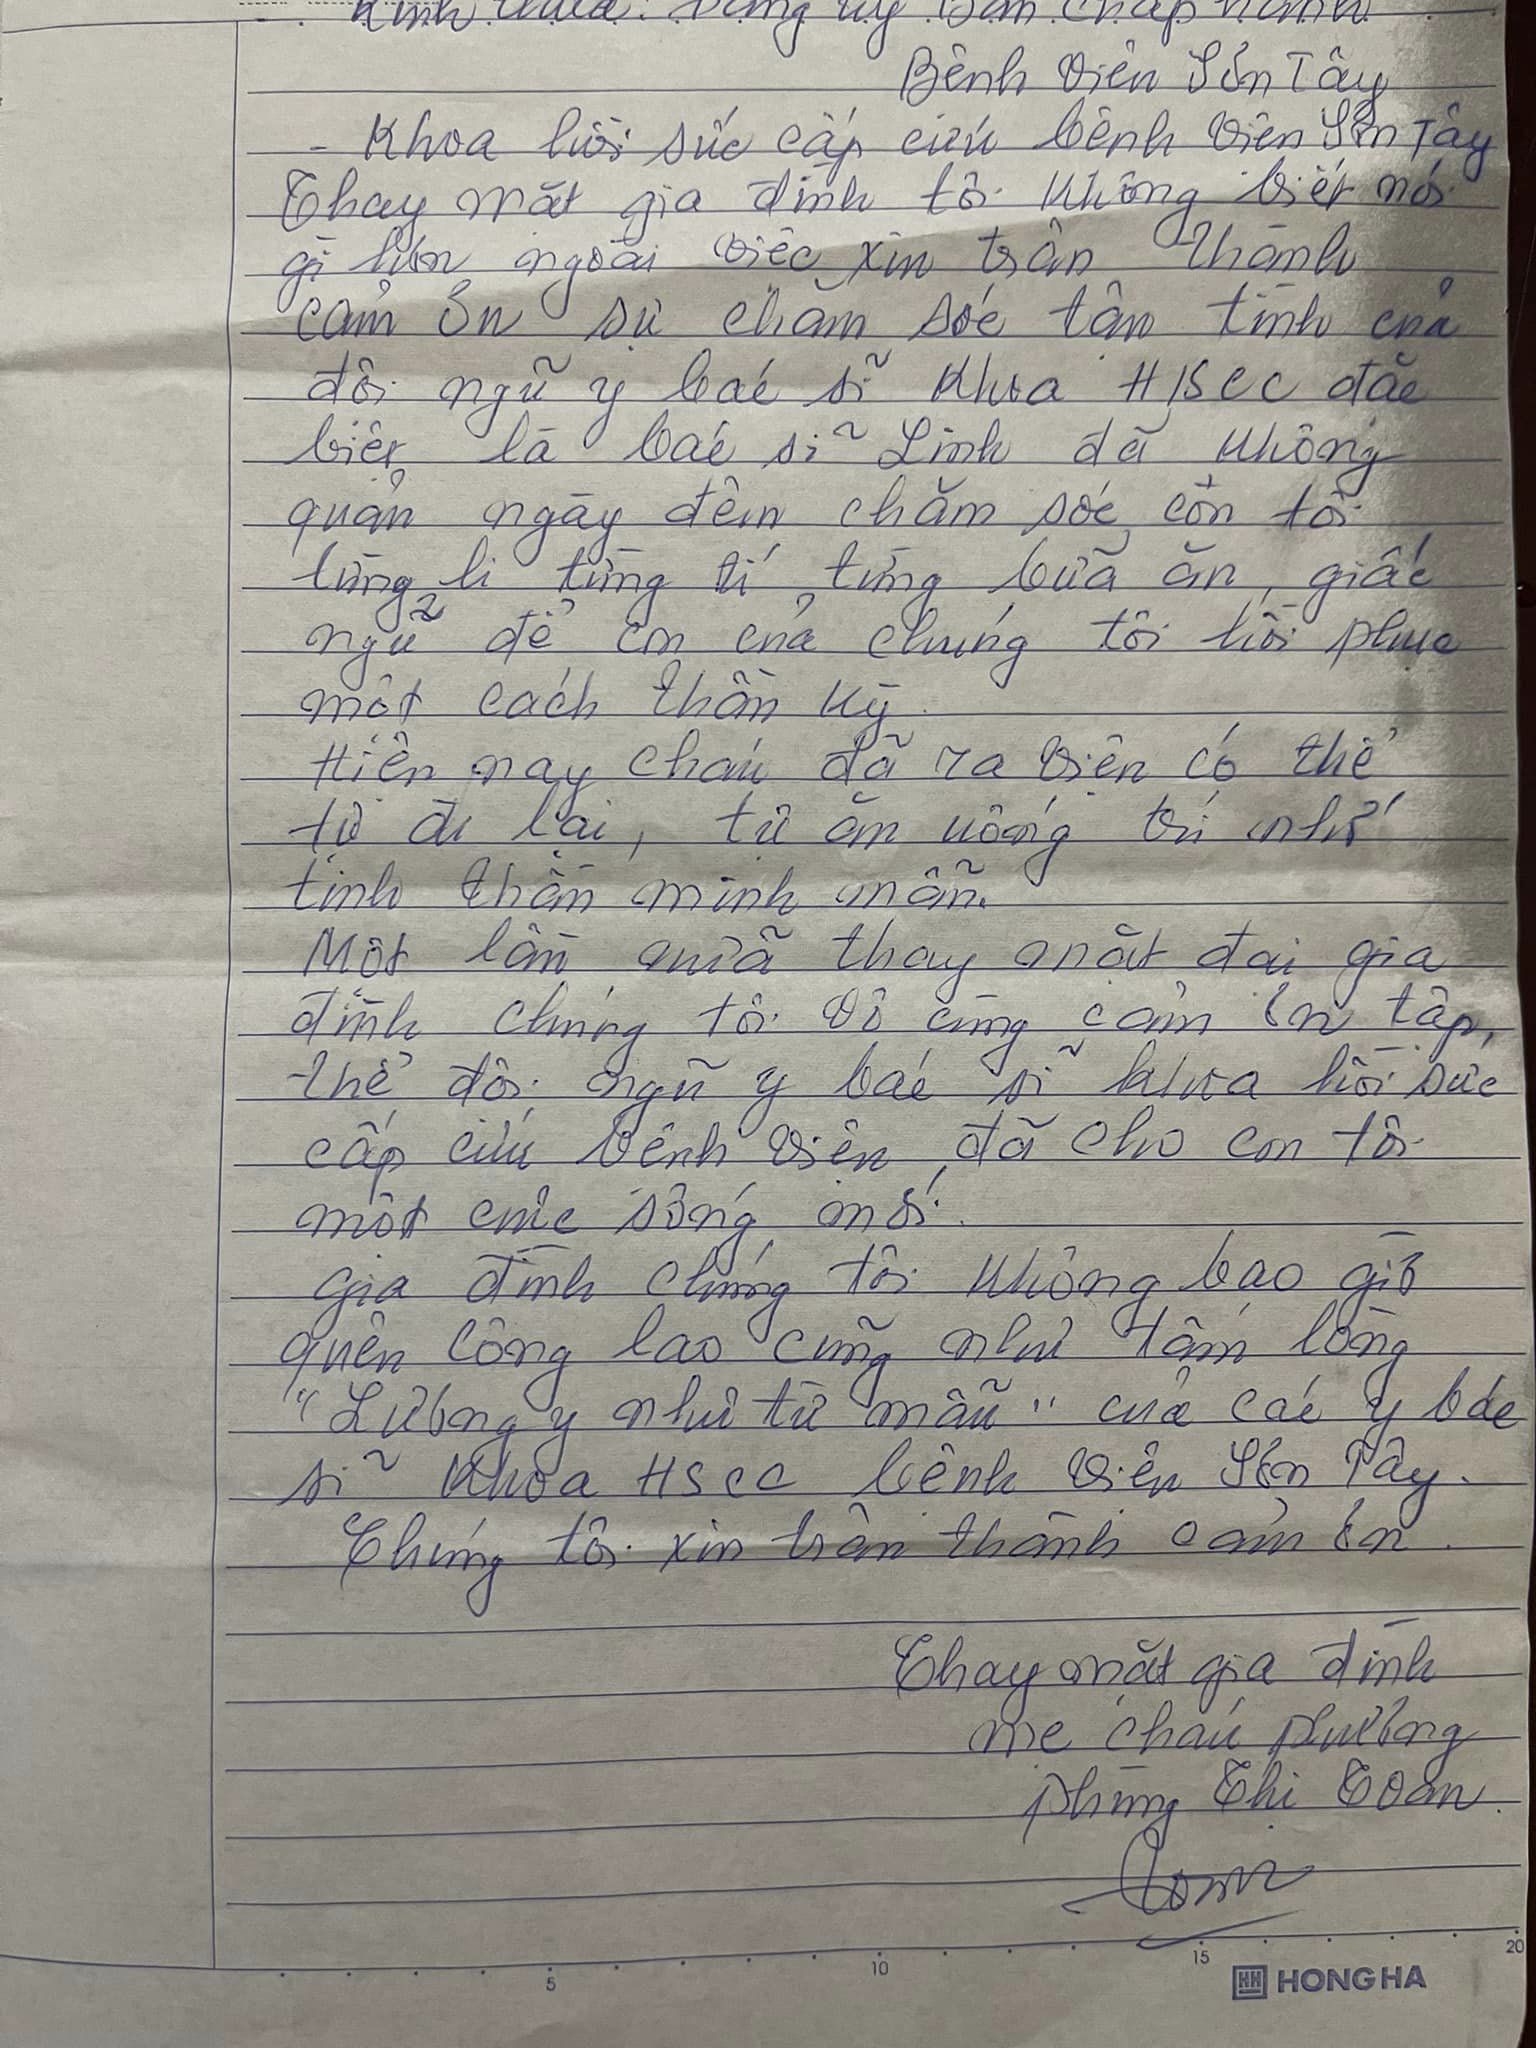 - Kính thưa: Đảng ủy Ban chấp hành
Bệnh viện Sơn Tây
- Khoa hồi sức cấp cứu bệnh viện Sơn Tây
Thay mặt gia đình tôi không biết nói
gì hơn ngoài việc xin trân thành
cảm ơn sự chăm sóc tận tình của
đội ngũ y bác sĩ khoa HSCC đặc
biệt là bác sĩ Linh đã không
quản ngày đêm chăm sóc con tôi
từng li từng tí, từng bữa ăn, giấc
ngủ để con của chúng tôi hồi phục
một cách thần kỳ.
Hiện nay cháu đã ra viện có thể
tự đi lại, tự ăn uống trí nhớ
tinh thần minh mẫn.
Một lần nữa thay mặt đại gia
đình chúng tôi vô cùng cảm ơn tập
thể đội ngũ y bác sĩ khoa hồi sức
cấp cứu bệnh viện đã cho con tôi
một cuộc sống mới.
gia đình chúng tôi không bao giờ
quên công lao cũng như tấm lòng
"Lương y như từ mẫu" của các y bác
sĩ khoa HSCC bệnh viện Sơn Tây.
Chúng tôi xin trân thành cảm ơn.
Thay mặt gia đình
mẹ cháu Phương
Phùng Thị Toan.
Toan
5 10 15 20
HH HONG HA